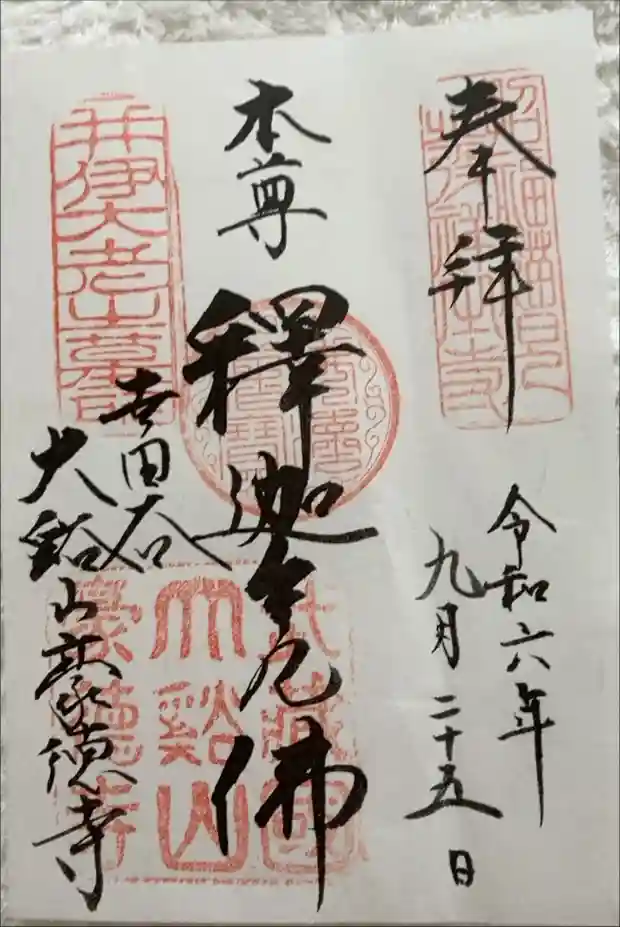 奉拝
令和六年
九月二十五日
本尊
釋迦牟尼佛
武藏國
大谿山
豪德寺
井伊大老之墓所
世田谷
大谿山豪徳寺